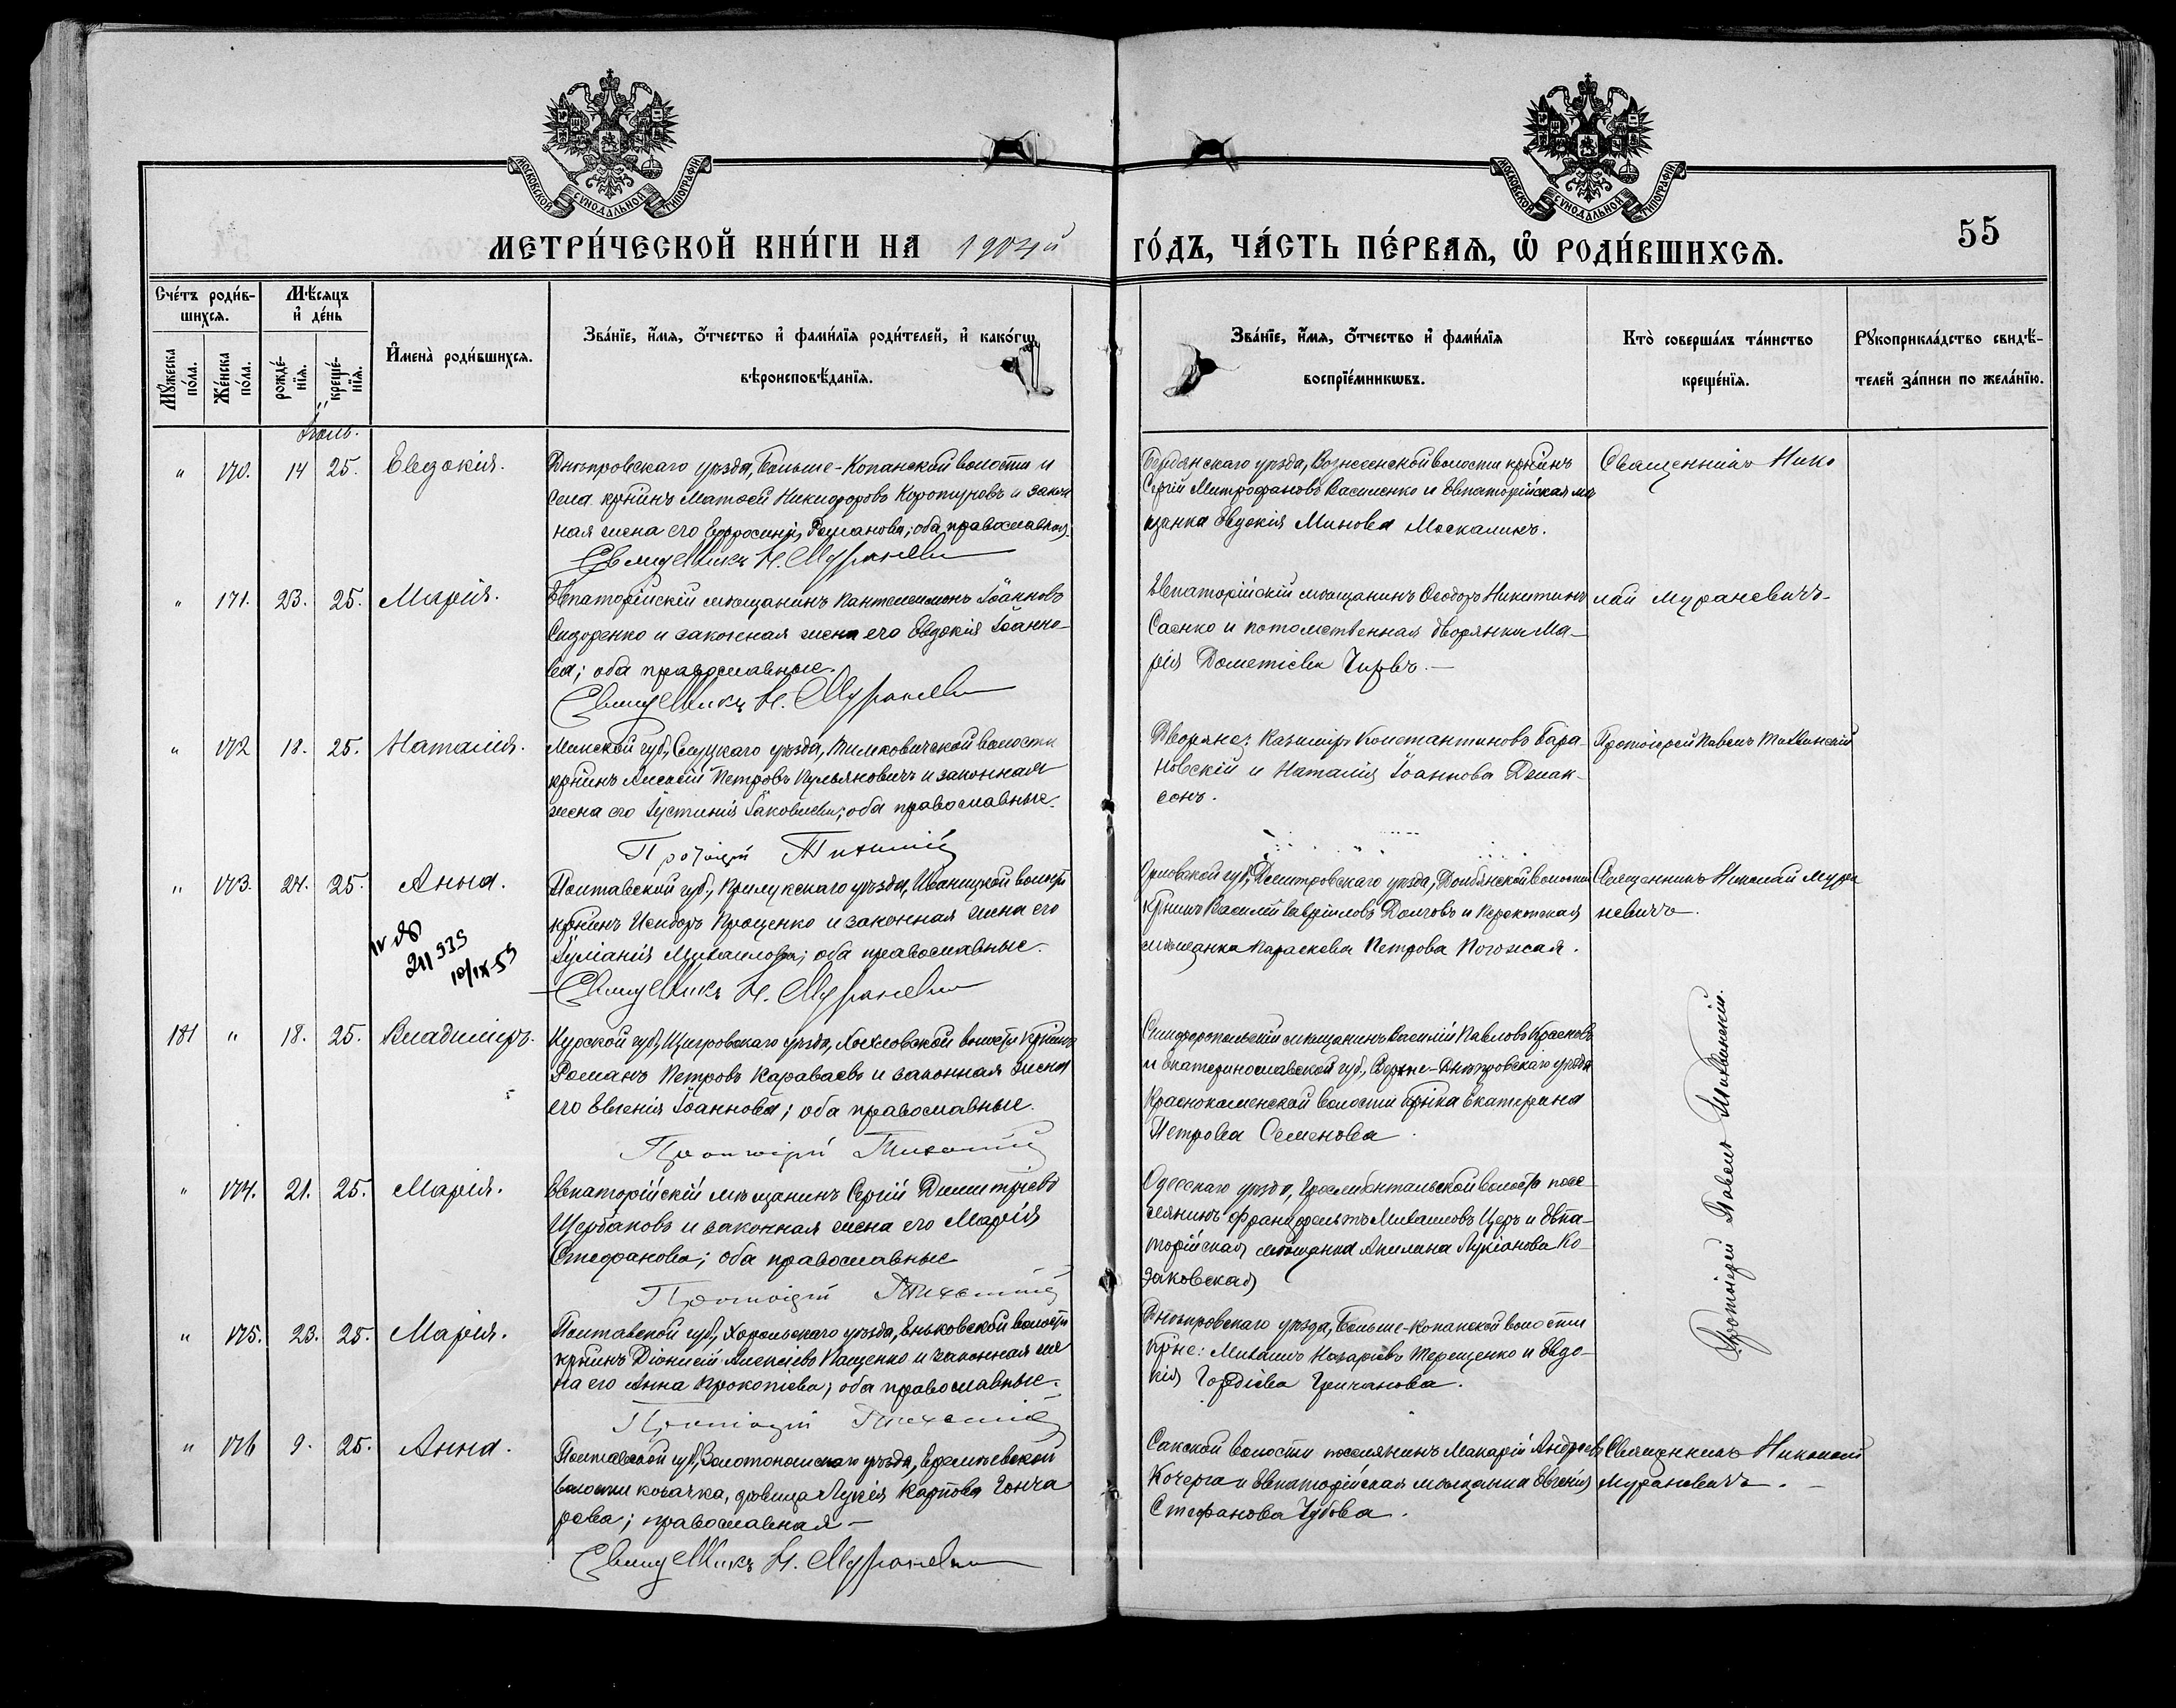 МОСКОВСКОЙ СѴНОДАЛЬНОЙ ТИПОГРАФІИ
МОСКОВСКОЙ СѴНОДАЛЬНОЙ ТИПОГРАФІИ
МЕТРИ́ЧЕСКОЙ КНИ́ГИ НА 1904й ГО́ДЪ, ЧА́СТЬ ПЕ́РВАѦ, Ѡ҆ РОДИ́ВШИХСѦ.
55
Сче́тъ роди́в-
шихсѧ.
Мꙋжеска
по́ла.
Же́нска
по́ла.
Мѣ́сѧцъ
и҆ де́нь
рожде́-
нїѧ.
креще́-
нїѧ.
И҆мена̀ роди́вшихсѧ.
Зва́нїе, и҆́мѧ, ѻ҆́тчество и҆ фами́лїѧ роди́телей, и҆ како́гѡ
вѣроисповѣ́данїѧ.
Зва́нїе, и҆́мѧ, ѻ҆́тчество и҆ фами́лїѧ
воспрїе́мникѡвъ.
Кто̀ соверша́лъ та́инство
креще́нїѧ.
Рꙋкоприкла́дство свидѣ́-
телей за́писи по жела́нїю.
Іюль.
" 170. 14 25. Евдокія.
Днѣпровскаго уѣзда, Больше-Копанской волости и
села кр̃нинъ Матѳей Никифоровъ и закон
ная жена его Евфросинія Романова; оба православные.
Священникъ Н. Мурановичъ
Бердянскаго уѣзда, Вознесенской волости кр̃нинъ
Сергій Митрофановъ Василенко и Евпаторійская мѣ
щанка Евдокія Минова Москалинъ.
Священникъ Нико
" 171. 23. 25. Марія.
Евпаторійскій мѣщанинъ Пантелеимонъ Іоанновъ
Сидоренко и законная жена его Евдокія Іоанно-
ва; оба православные.
Священникъ Н. Мурановичъ
Евпаторійскій мѣщанинъ Ѳеодоръ Никитинъ
Саенко и потомственная дворянка Ма-
рія Дометіева
лай Мурановичъ.
" 172 18. 25. Наталія.
Минской губ., Слуцкаго уѣзда, Тимковичской волости
кр̃нинъ Алексій Петровъ Кульяновичъ и законная
жена его Іустинія Іаковлева; оба православные.
Протоіерей Тихвинскій
Дворяне: Казиміръ Константиновъ Бара-
новскій и Наталія Іоаннова Джак-
сонъ.
Протоіерей Павелъ Тихвинскій
" 173. 24. 25. Анна.
Полтавской губ., Прилукскаго уѣзда, Иваницкой волости
кр̃нинъ Исидоръ Проценко и законная жена его
Іуліанія Михаилова; оба православные.
Священникъ Н. Мурановичъ
10/IX-53
Орловской губ., Дмитровскаго уѣзда, волости
кр̃нинъ Василій Гавріиловъ Долговъ и Перекопская
мѣщанка Параскева Петрова Погожая.
Священникъ Николай Мура
новичъ.
181 " 18. 25. Владиміръ.
Курской губ., Щигровскаго уѣзда, Хохловской волости кр̃нинъ
Романъ Петровъ Караваевъ и законная жена
его Евгенія Іоаннова; оба православные.
Протоіерей Тихвинскій
Симферопольскій мѣщанинъ Василій Павловъ Красновъ
и Екатеринославской губ., Верхне-Днѣпровскаго уѣзда
Краснокаменской волости кр̃нка Екатерина
Петрова Семенова.
" 174. 21. 25. Марія.
Евпаторійскій мѣщанинъ Сергій Димитріевъ
Щербаковъ и законная жена его Марія
Стефанова; оба православные
Протоіерей Тихвинскій
Одесскаго уѣзда, Гросслибентальской волости посе-
лянинъ Михаиловъ Церъ и Евпа-
торійская мѣщанка Акилина Лукіанова Ко-
заковская
Протоіерей Павелъ Тихвинскій.
" 175. 23. 25. Марія.
Полтавской губ., Хорольскаго уѣзда, Еньковской волости
кр̃нинъ Діонисій Алексіевъ Пащенко и законная же
на его Анна Прокопіева; оба православные.
Протоіерей Тихвинскій
Днѣпровскаго уѣзда, Больше-Копанской волости
кр̃не: Михаилъ Назаріевъ Терещенко и Евдо-
кія Гордіева Гричанова.
" 176 9. 25. Анна.
Полтавской губ., Золотоношскаго уѣзда, Еремѣевской
волости козачка, дѣвица Лукія Карпова Гонча
рова; православная —
Священникъ Н. Мурановичъ
Сакской волости поселянинъ Макарій Андреевъ
Кочерга и Евпаторійская мѣщанка Евгенія
Стефанова Чубова.
Священникъ Николай
Мурановичъ. —